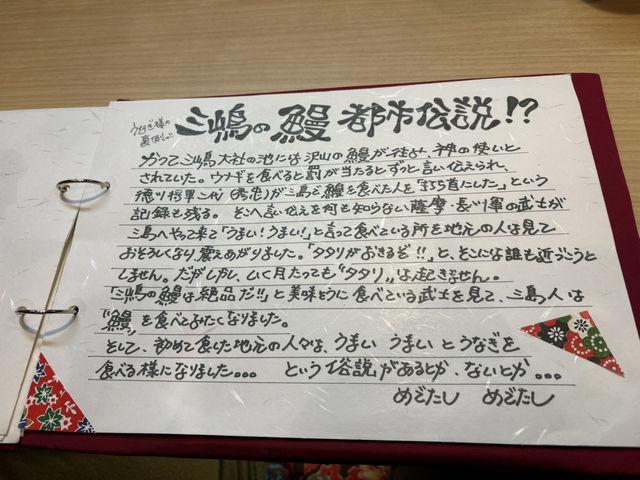 うなぎ様の
裏側!!
三嶋の鰻 都市伝説!?
かつて三嶋大社の池には沢山の鰻が住み 神の使いと
されていた。ウナギを食べると罰が当たるとずっと言い伝えられ、
徳川将軍二代(秀忠)が三島で鰻を食べた人を「打ち首にした」という
記録も残る。そこへ言い伝えを何も知らない薩摩・長州軍の武士が
三島へやって来て「うまい!うまい!」と言って食べている所を地元の人は見て
おそろしくなり、震えあがりました。「タタリがおきるぞ!!」と、そこには誰も近づこうと
しません。だがしかし、いく月たっても“タタリ”は起きません。
「三嶋の鰻は絶品だ!!」と美味そうに食べている武士を見て、三島人は
“鰻”を食べてみたくなりました。
そして、初めて食した地元の人々は、うまい うまい とうなぎを
食べる様になりました… という俗説があるとか、ないとか…
めでたし めでたし